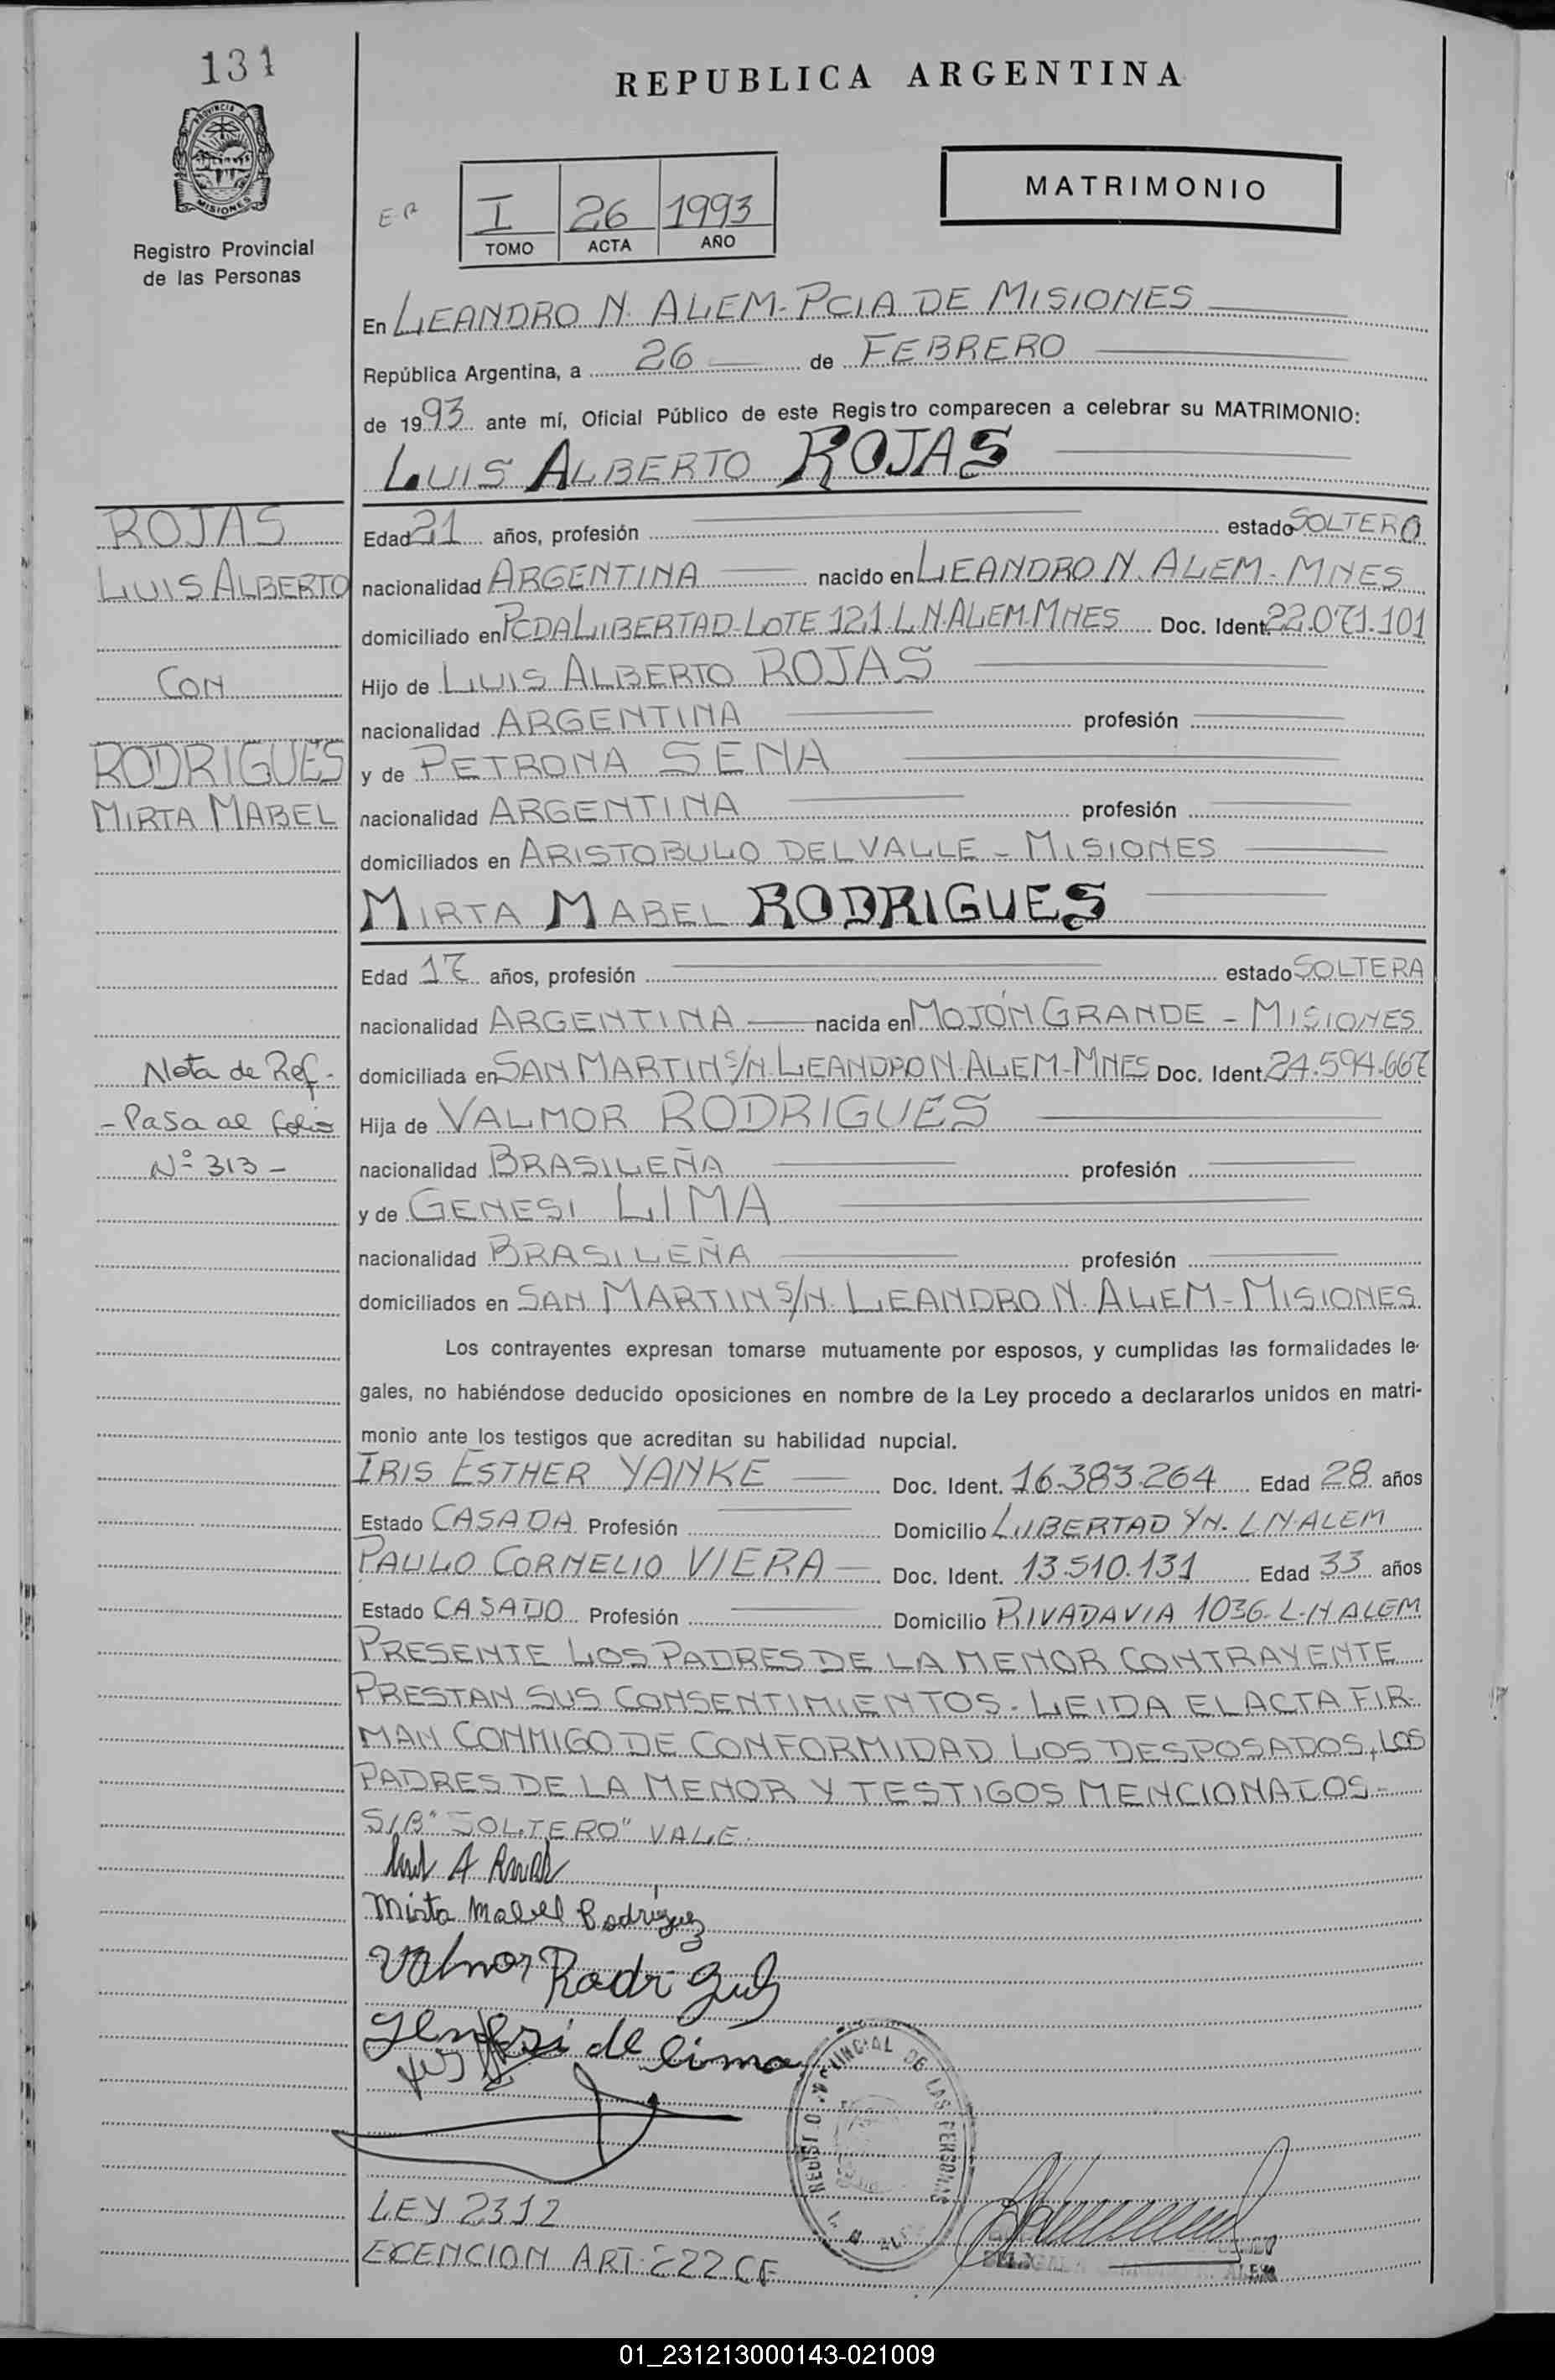 131
REPUBLICA ARGENTINA
PROVINCIA DE
MISIONES
Registro Provincial
de las Personas
I 26 1993
TOMO ACTA AÑO
MATRIMONIO
En LEANDRO N. ALEM-PCIA DE MISIONES
República Argentina, a 26 de FEBRERO
de 1993 ante mí, Oficial Público de este Registro comparecen a celebrar su MATRIMONIO:
LUIS ALBERTO ROJAS
ROJAS
LUIS ALBERTO
CON
RODRIGUES
MIRTA MABEL
Nota de Ref-
-Pasa al folio
Nº 313-
Edad 21 años, profesión estado SOLTERO
nacionalidad ARGENTINA nacido en LEANDRO N. ALEM-MNES
domiciliado en PCDA LIBERTAD-LOTE 121.L.N.ALEM-MNES Doc. Ident. 22.071.101
Hijo de LUIS ALBERTO ROJAS
nacionalidad ARGENTINA profesión
y de PETRONA SENA
nacionalidad ARGENTINA profesión
domiciliados en ARISTOBULO DEL VALLE - MISIONES
MIRTA MABEL RODRIGUES
Edad 17 años, profesión estado SOLTERA
nacionalidad ARGENTINA nacida en MOJÓN GRANDE - MISIONES
domiciliada en SAN MARTIN S/N LEANDRO N. ALEM-MNES Doc. Ident. 24.594.667
Hija de VALMOR RODRIGUES
nacionalidad BRASILEÑA profesión
y de GENESI LIMA
nacionalidad BRASILEÑA profesión
domiciliados en SAN MARTIN S/N. LEANDRO N. ALEM-MISIONES
Los contrayentes expresan tomarse mutuamente por esposos, y cumplidas las formalidades le-
gales, no habiéndose deducido oposiciones en nombre de la Ley procedo a declararlos unidos en matri-
monio ante los testigos que acreditan su habilidad nupcial.
IRIS ESTHER YANKE Doc. Ident. 16.383.264 Edad 28 años
Estado CASADA Profesión Domicilio LIBERTAD S/N. L N ALEM
PAULO CORNELIO VIERA Doc. Ident. 13.510.131 Edad 33 años
Estado CASADO Profesión Domicilio RIVADAVIA 1036-L-N ALEM
PRESENTE LOS PADRES DE LA MENOR CONTRAYENTE
PRESTAN SUS CONSENTIMIENTOS-LEIDA EL ACTA FIR-
MAN CONMIGO DE CONFORMIDAD LOS DESPOSADOS, LOS
PADRES DE LA MENOR Y TESTIGOS MENCIONADOS-
S/B "SOLTERO" VALE.
Mirta Mabel Rodríguez
Valmor Rodrigues
Genesi de Lima
PROVINCIAL DE LAS PERSONAS
LEY 2312
EXENCION ART. 222 CF
01_231213000143-021009